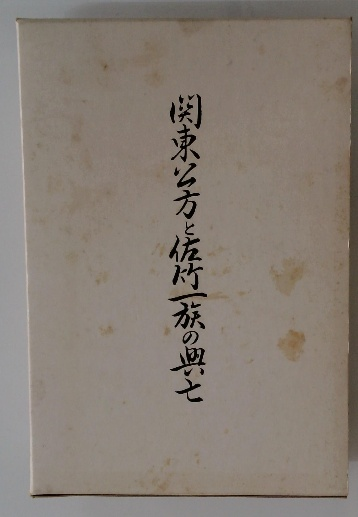 関東公方と佐竹一族の興亡